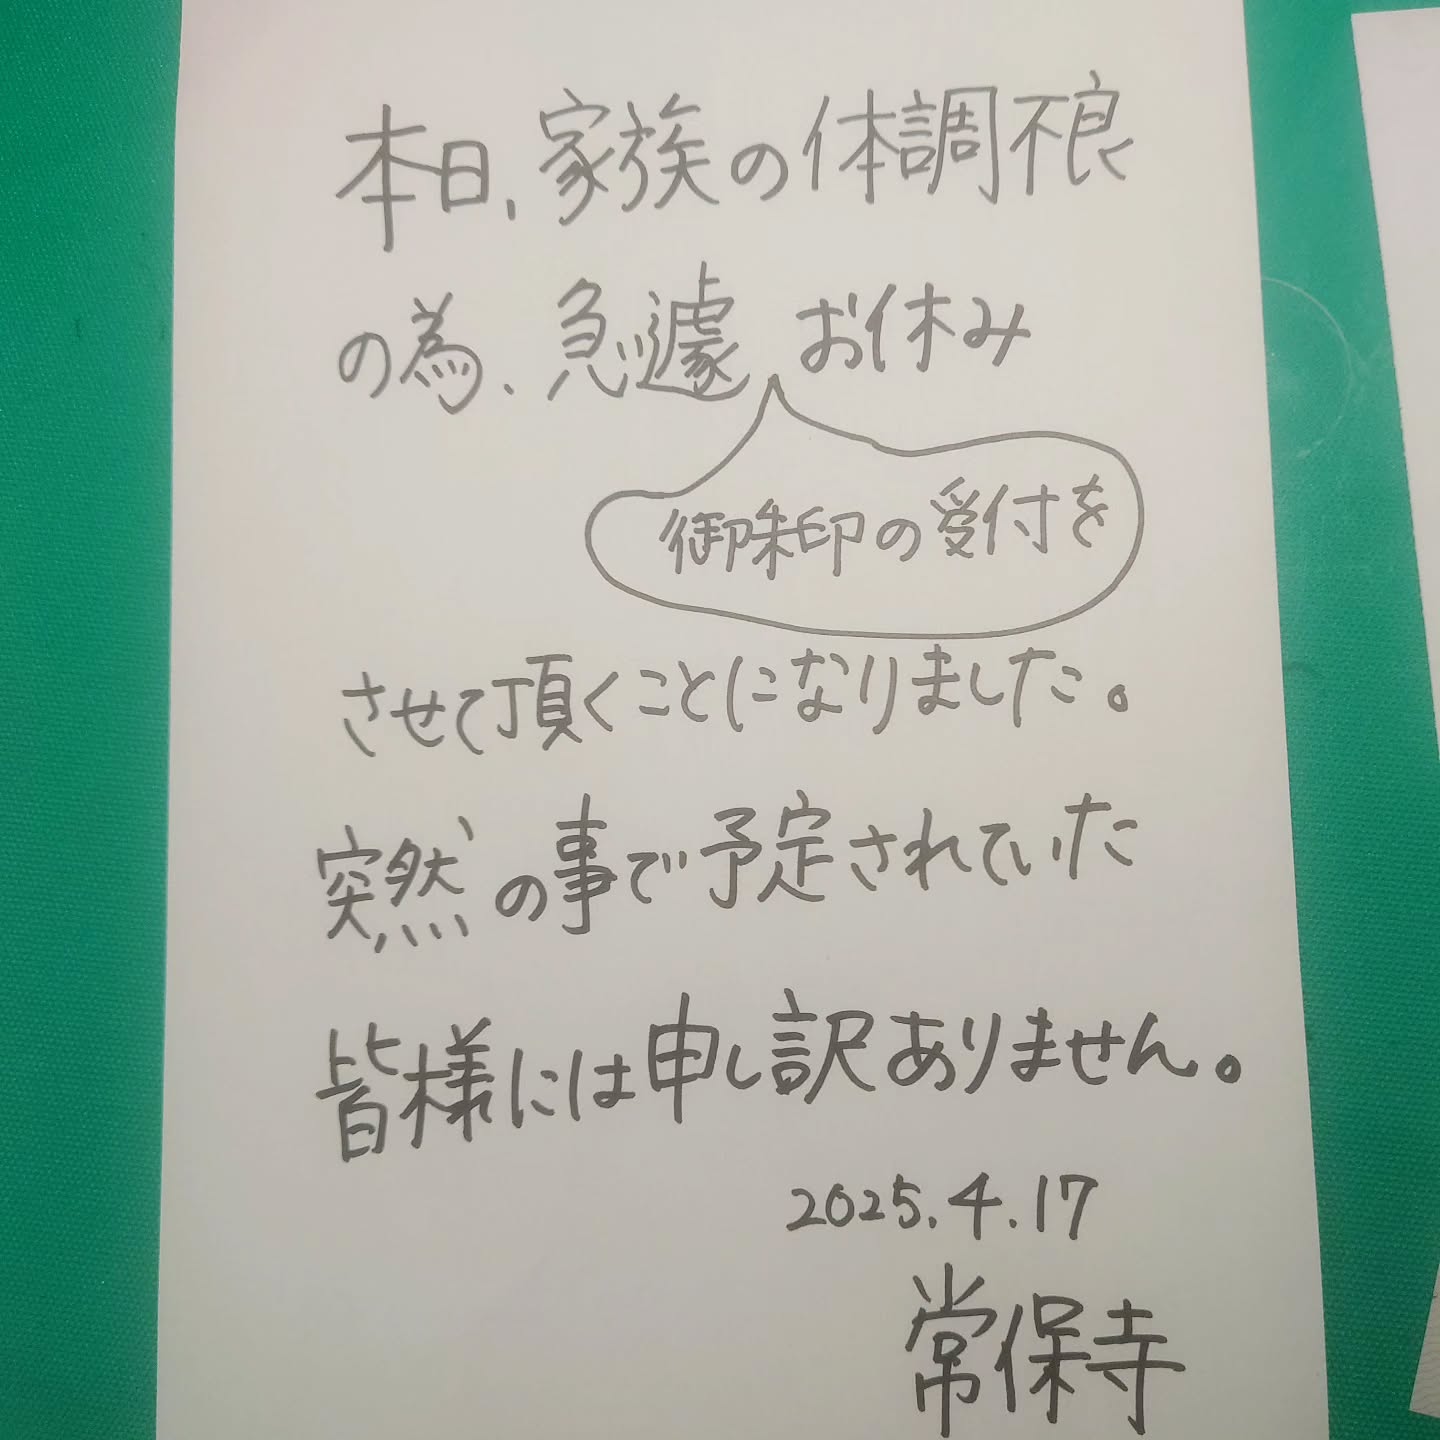 本日、家族の体調不良
の為、急遽 お休み
御朱印の受付を
させて頂くことになりました。
突然の事で予定されていた
皆様には申し訳ありません。
2025.4.17
常保寺